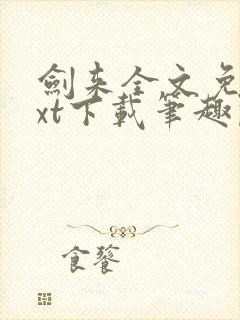 劍来全文免
xt下載筆趣
食餮